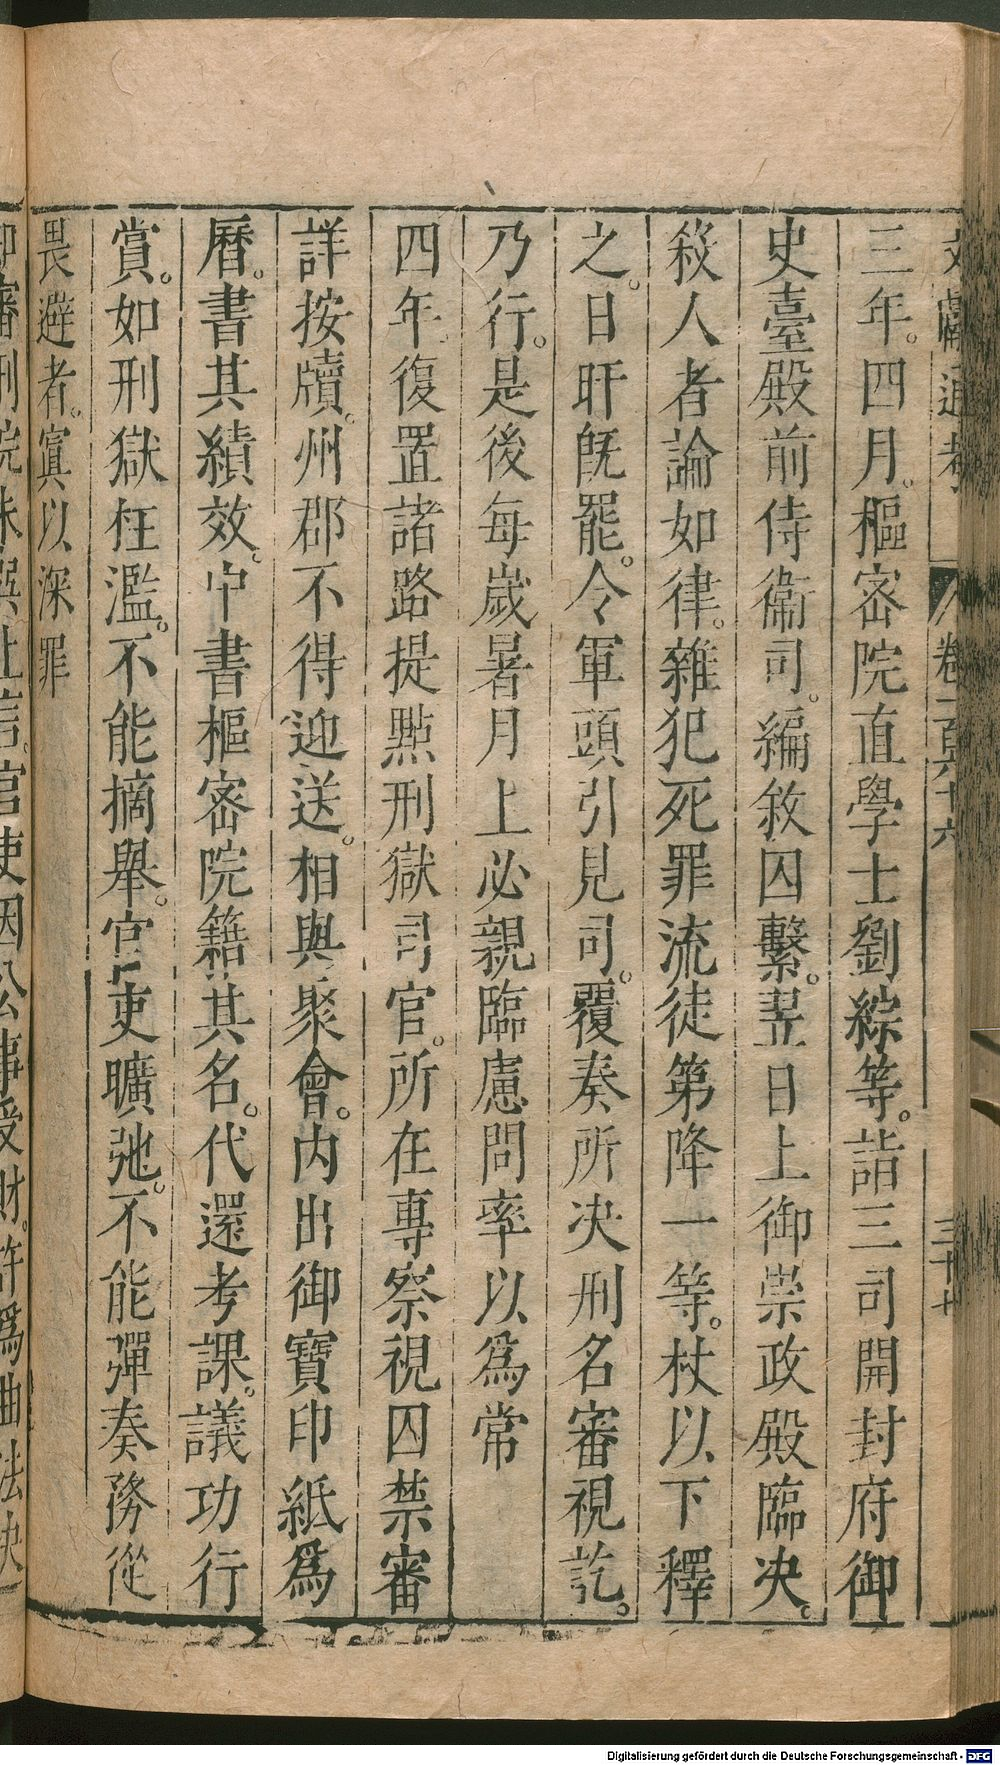 文獻通考 卷一百六十六 三十七
三年。四月。樞密院直學士劉綜等。詣三司開封府御
史臺殿前侍衛司。編敘囚繫。翌日上御崇政殿臨決。
殺人者論如律。雜犯死罪流徒第降一等。杖以下釋
之。日旰既罷。令軍頭引見司。覆奏所決刑名審視訖。
乃行。是後每歲暑月上必親臨慮問率以為常
四年復置諸路提點刑獄司官。所在專察視囚禁審
詳按牘。州郡不得迎送。相與聚會。內出御寶印紙為
曆。書其績效。中書樞密院籍其名。代還考課。議功行
賞。如刑獄枉濫。不能摘舉。官吏曠弛。不能彈奏務從
畏避者。寘以深罪
Digitalisierung gefördert durch die Deutsche Forschungsgemeinschaft - DFG